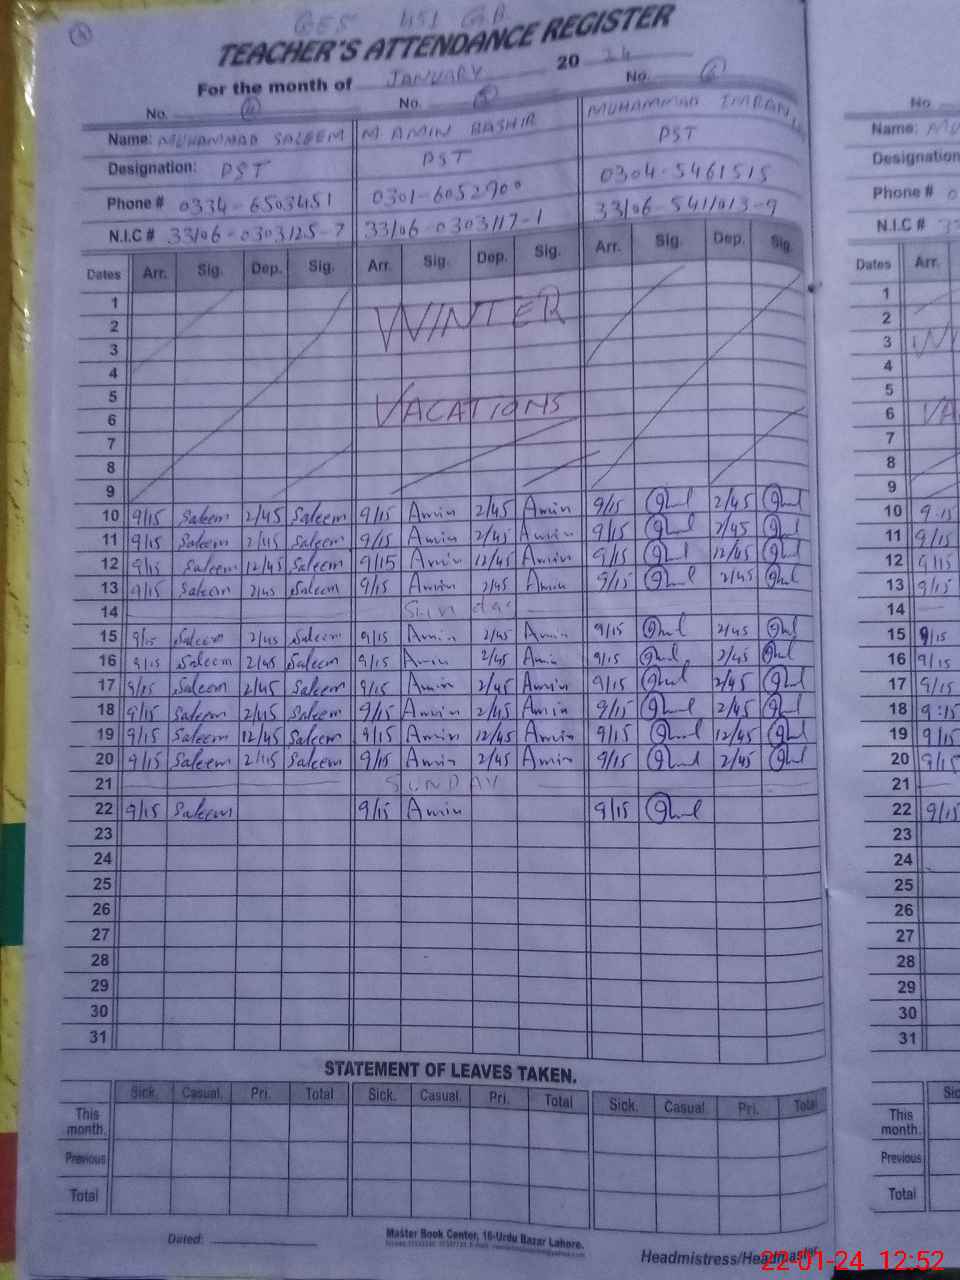 GES 451 GB
TEACHER'S ATTENDANCE REGISTER
For the month of JANUARY 20 24
No. 4 No. 5 No. 6
Name: MUHAMMAD SALEEM M AMIN BASHIR MUHAMMAD IMRAN
Designation: PST PST PST
Phone # 0334-6503451 0301-6052900 0304-5461515
N.I.C # 33106-0303125-7 33106-0303117-1 33106-5411013-9
Dates Arr. Sig. Dep. Sig. Arr. Sig. Dep. Sig. Arr. Sig. Dep. Sig.
1
2 WINTER
3
4
5
6 VACATIONS
7
8
9
10 9/15 Saleem 2/45 Saleem 9/15 Amin 2/45 Amin 9/15 2/45
11 9/15 Saleem 2/45 Saleem 9/15 Amin 2/45 Amin 9/15 2/45
12 9/15 Saleem 12/45 Saleem 9/15 Amin 12/45 Amin 9/15 12/45
13 9/15 Saleem 2/45 Saleem 9/15 Amin 2/45 Amin 9/15 2/45
14 Sunday
15 9/15 Saleem 2/45 Saleem 9/15 Amin 2/45 Amin 9/15 2/45
16 9/15 Saleem 2/45 Saleem 9/15 Amin 2/45 Amin 9/15 2/45
17 9/15 Saleem 2/45 Saleem 9/15 Amin 2/45 Amin 9/15 2/45
18 9/15 Saleem 2/45 Saleem 9/15 Amin 2/45 Amin 9/15 2/45
19 9/15 Saleem 12/45 Saleem 9/15 Amin 12/45 Amin 9/15 12/45
20 9/15 Saleem 2/45 Saleem 9/15 Amin 2/45 Amin 9/15 2/45
21 SUNDAY
22 9/15 Saleem 9/15 Amin 9/15
23
24
25
26
27
28
29
30
31
STATEMENT OF LEAVES TAKEN.
Sick. Casual. Pri. Total Sick. Casual. Pri. Total Sick. Casual. Pri. Total
This month.
Previous
Total
Dated:
Master Book Center, 16-Urdu Bazar Lahore.
Headmistress/Headmaster
No.
Name: MU
Designation
Phone # 0
N.I.C # 3
Dates Arr.
1
2
3 WI
4
5
6 VA
7
8
9
10 9:15
11 9/15
12 9/15
13 9/15
14
15 9/15
16 9/15
17 9/15
18 9:15
19 9/15
20 9/15
21
22 9/15
23
24
25
26
27
28
29
30
31
Sic
This month.
Previous
Total
22-01-24 12:52